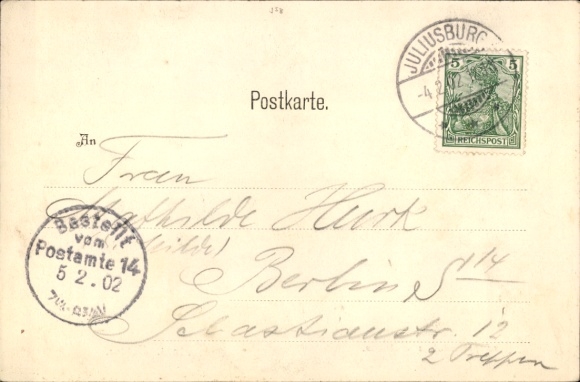 JULIUSBURG
-4.2.02
5 5
REICHSPOST
Postkarte.
An
Frau
Mathilde Hurk
Bestellt
vom
Postamte 14
5 2.02
Berlin S 14
Sebastianstr. 12
2 Treppen